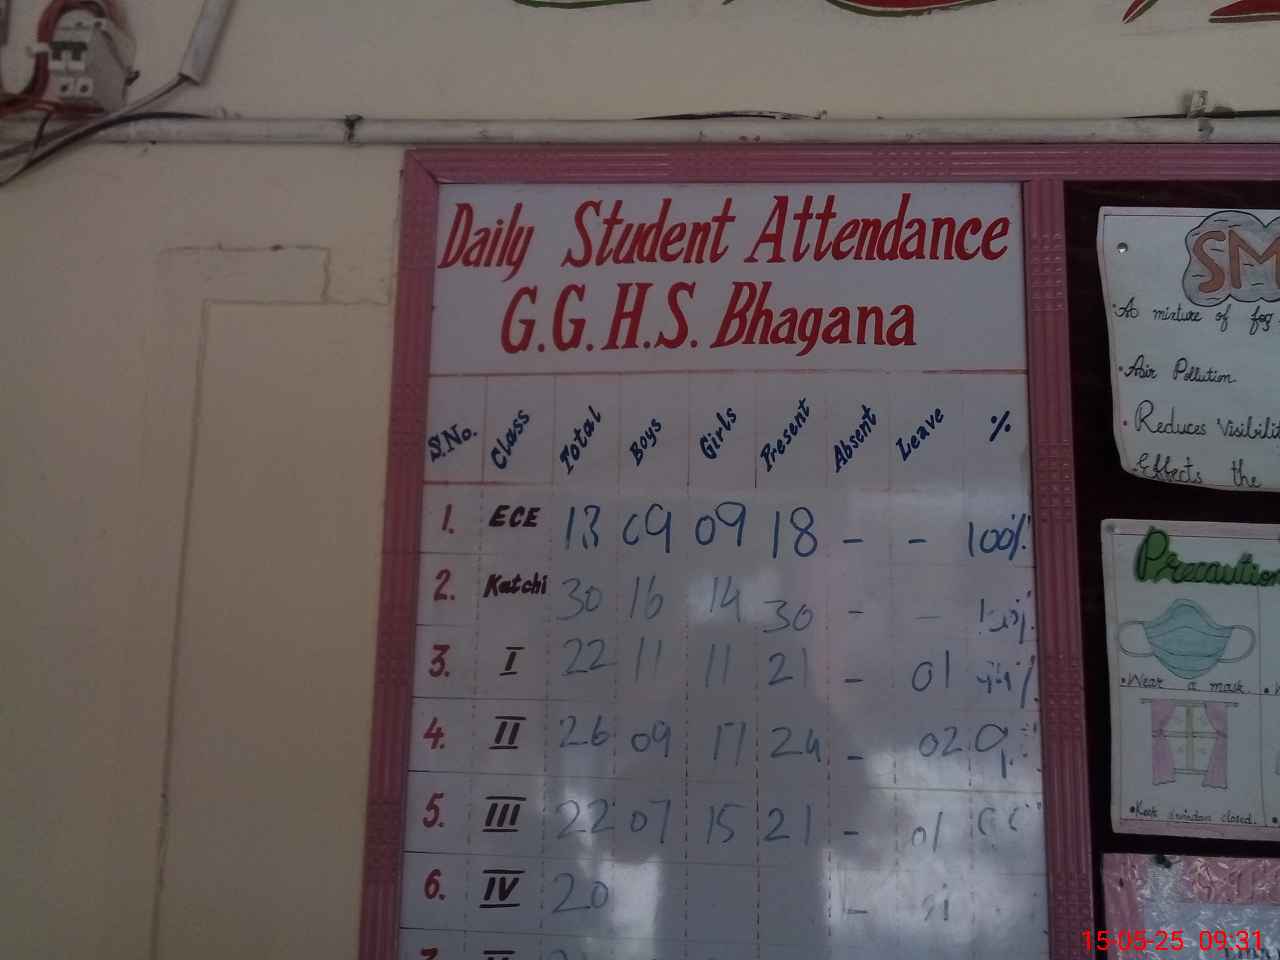 Daily Student Attendance
G.G.H.S. Bhagana
S.No. Class Total Boys Girls Present Absent Leave %
1. ECE 18 09 09 18 - - 100%
2. Katchi 30 16 14 30 - -
3. I 22 11 11 21 - 01
4. II 26 09 17 24 - 02
5. III 22 07 15 21 - 01
6. IV 20 -
SM
• A mixture of fog
• Air Pollution.
• Reduces Visibilit
• Effects the
Precaution
• Wear a mask.
• Keep window closed.
15-05-25 09:31